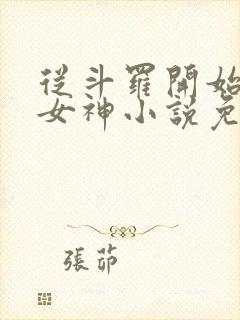 從斗羅開始
女神小說免
張茆